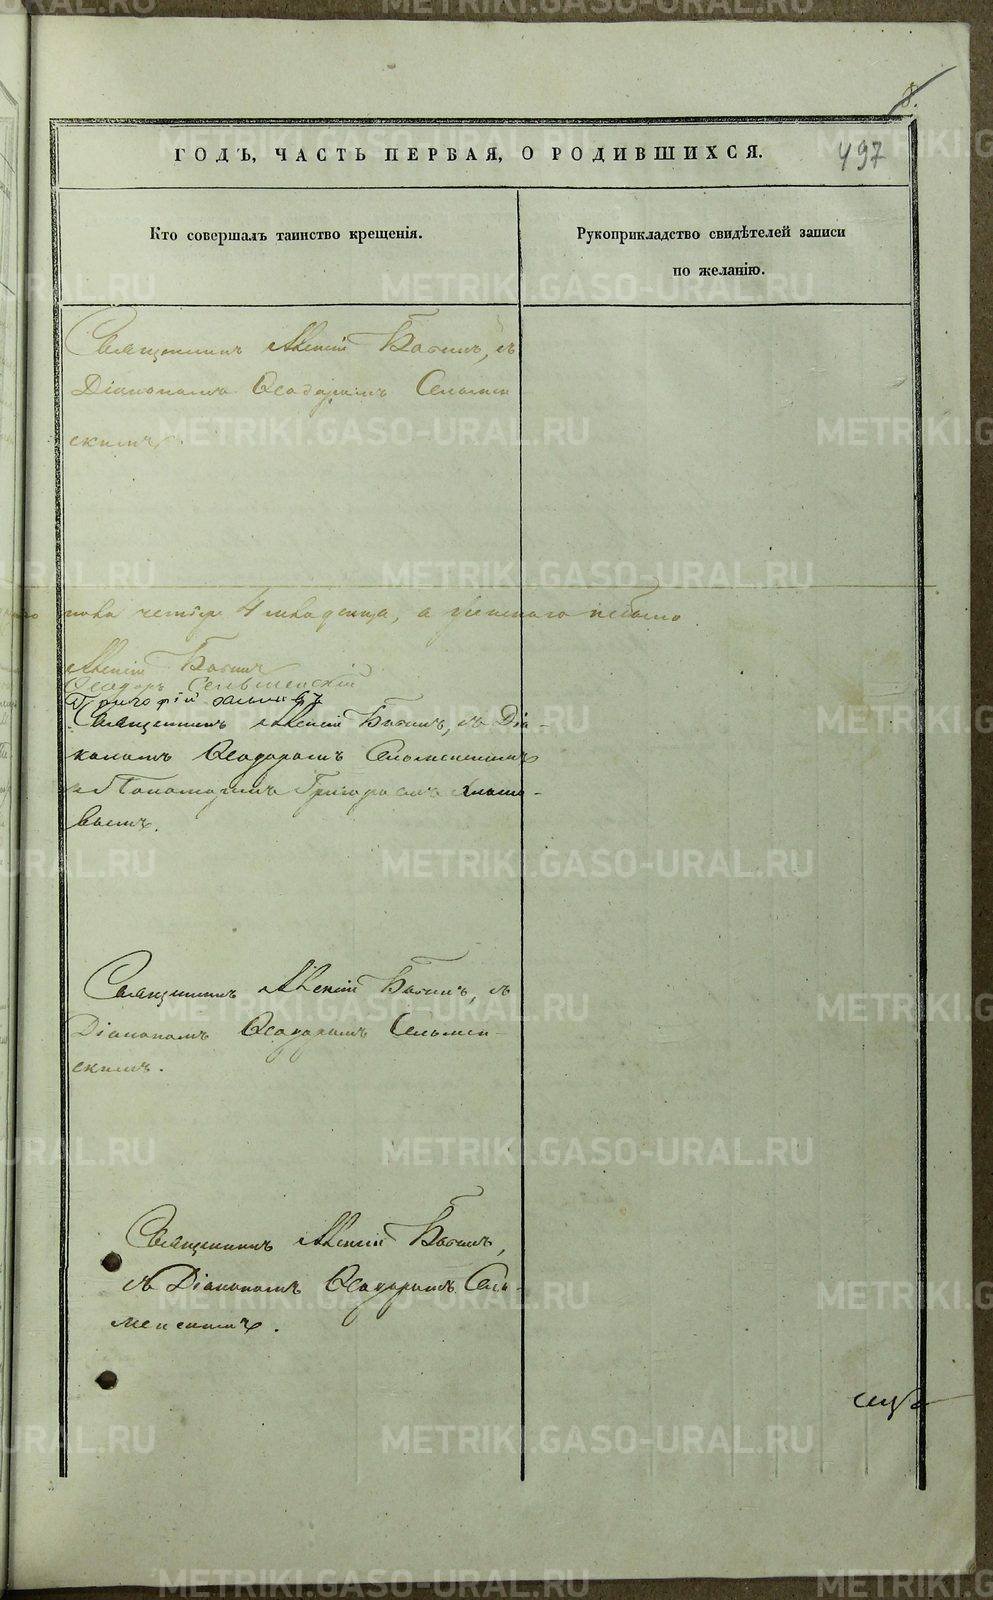 8.
497
ГОДЪ, ЧАСТЬ ПЕРВАЯ, О РОДИВШИХСЯ.
Кто совершалъ таинство крещенія.
Рукоприкладство свидѣтелей записи
по желанію.
Священникъ Алексій Бабинъ, съ
Діакономъ Ѳеодоромъ Сельмен
скимъ.
четыре 4 младенца, а
Алексій Бабинъ
Ѳеодоръ Сельменскій
Григорій
Священникъ Алексій Бабинъ, съ Діа-
кономъ Ѳеодоромъ Сельменскимъ
и Пономаремъ Григоріемъ
вымъ.
Священникъ Алексій Бабинъ, съ
Діакономъ Ѳеодоромъ Сельмен-
скимъ.
Священникъ Алексій Бабинъ,
съ Діакономъ Ѳеодоромъ Сель-
менскимъ.
METRIKI.GASO-URAL.RU